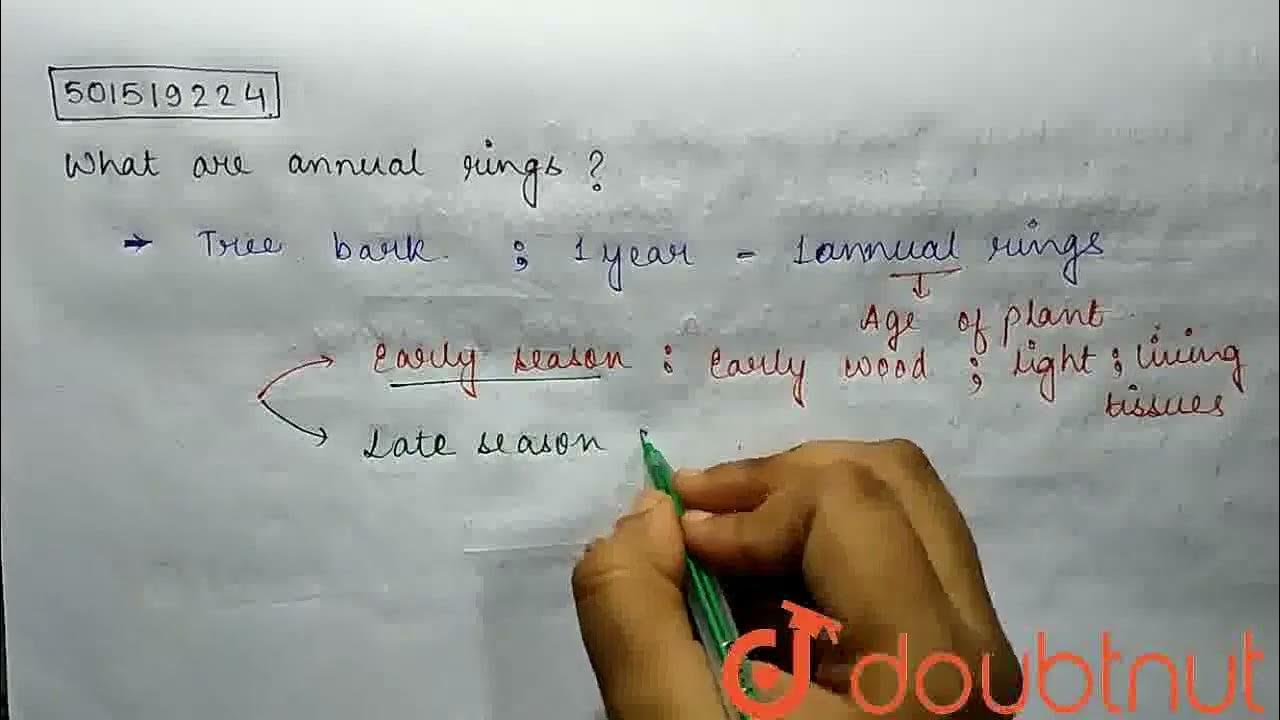 501519224
What are annual rings ?
→ Tree bark ; 1 year - 1 annual rings
↓
Age of plant
Early season : early wood ; light ; living
tissues
Late season
doubtnut